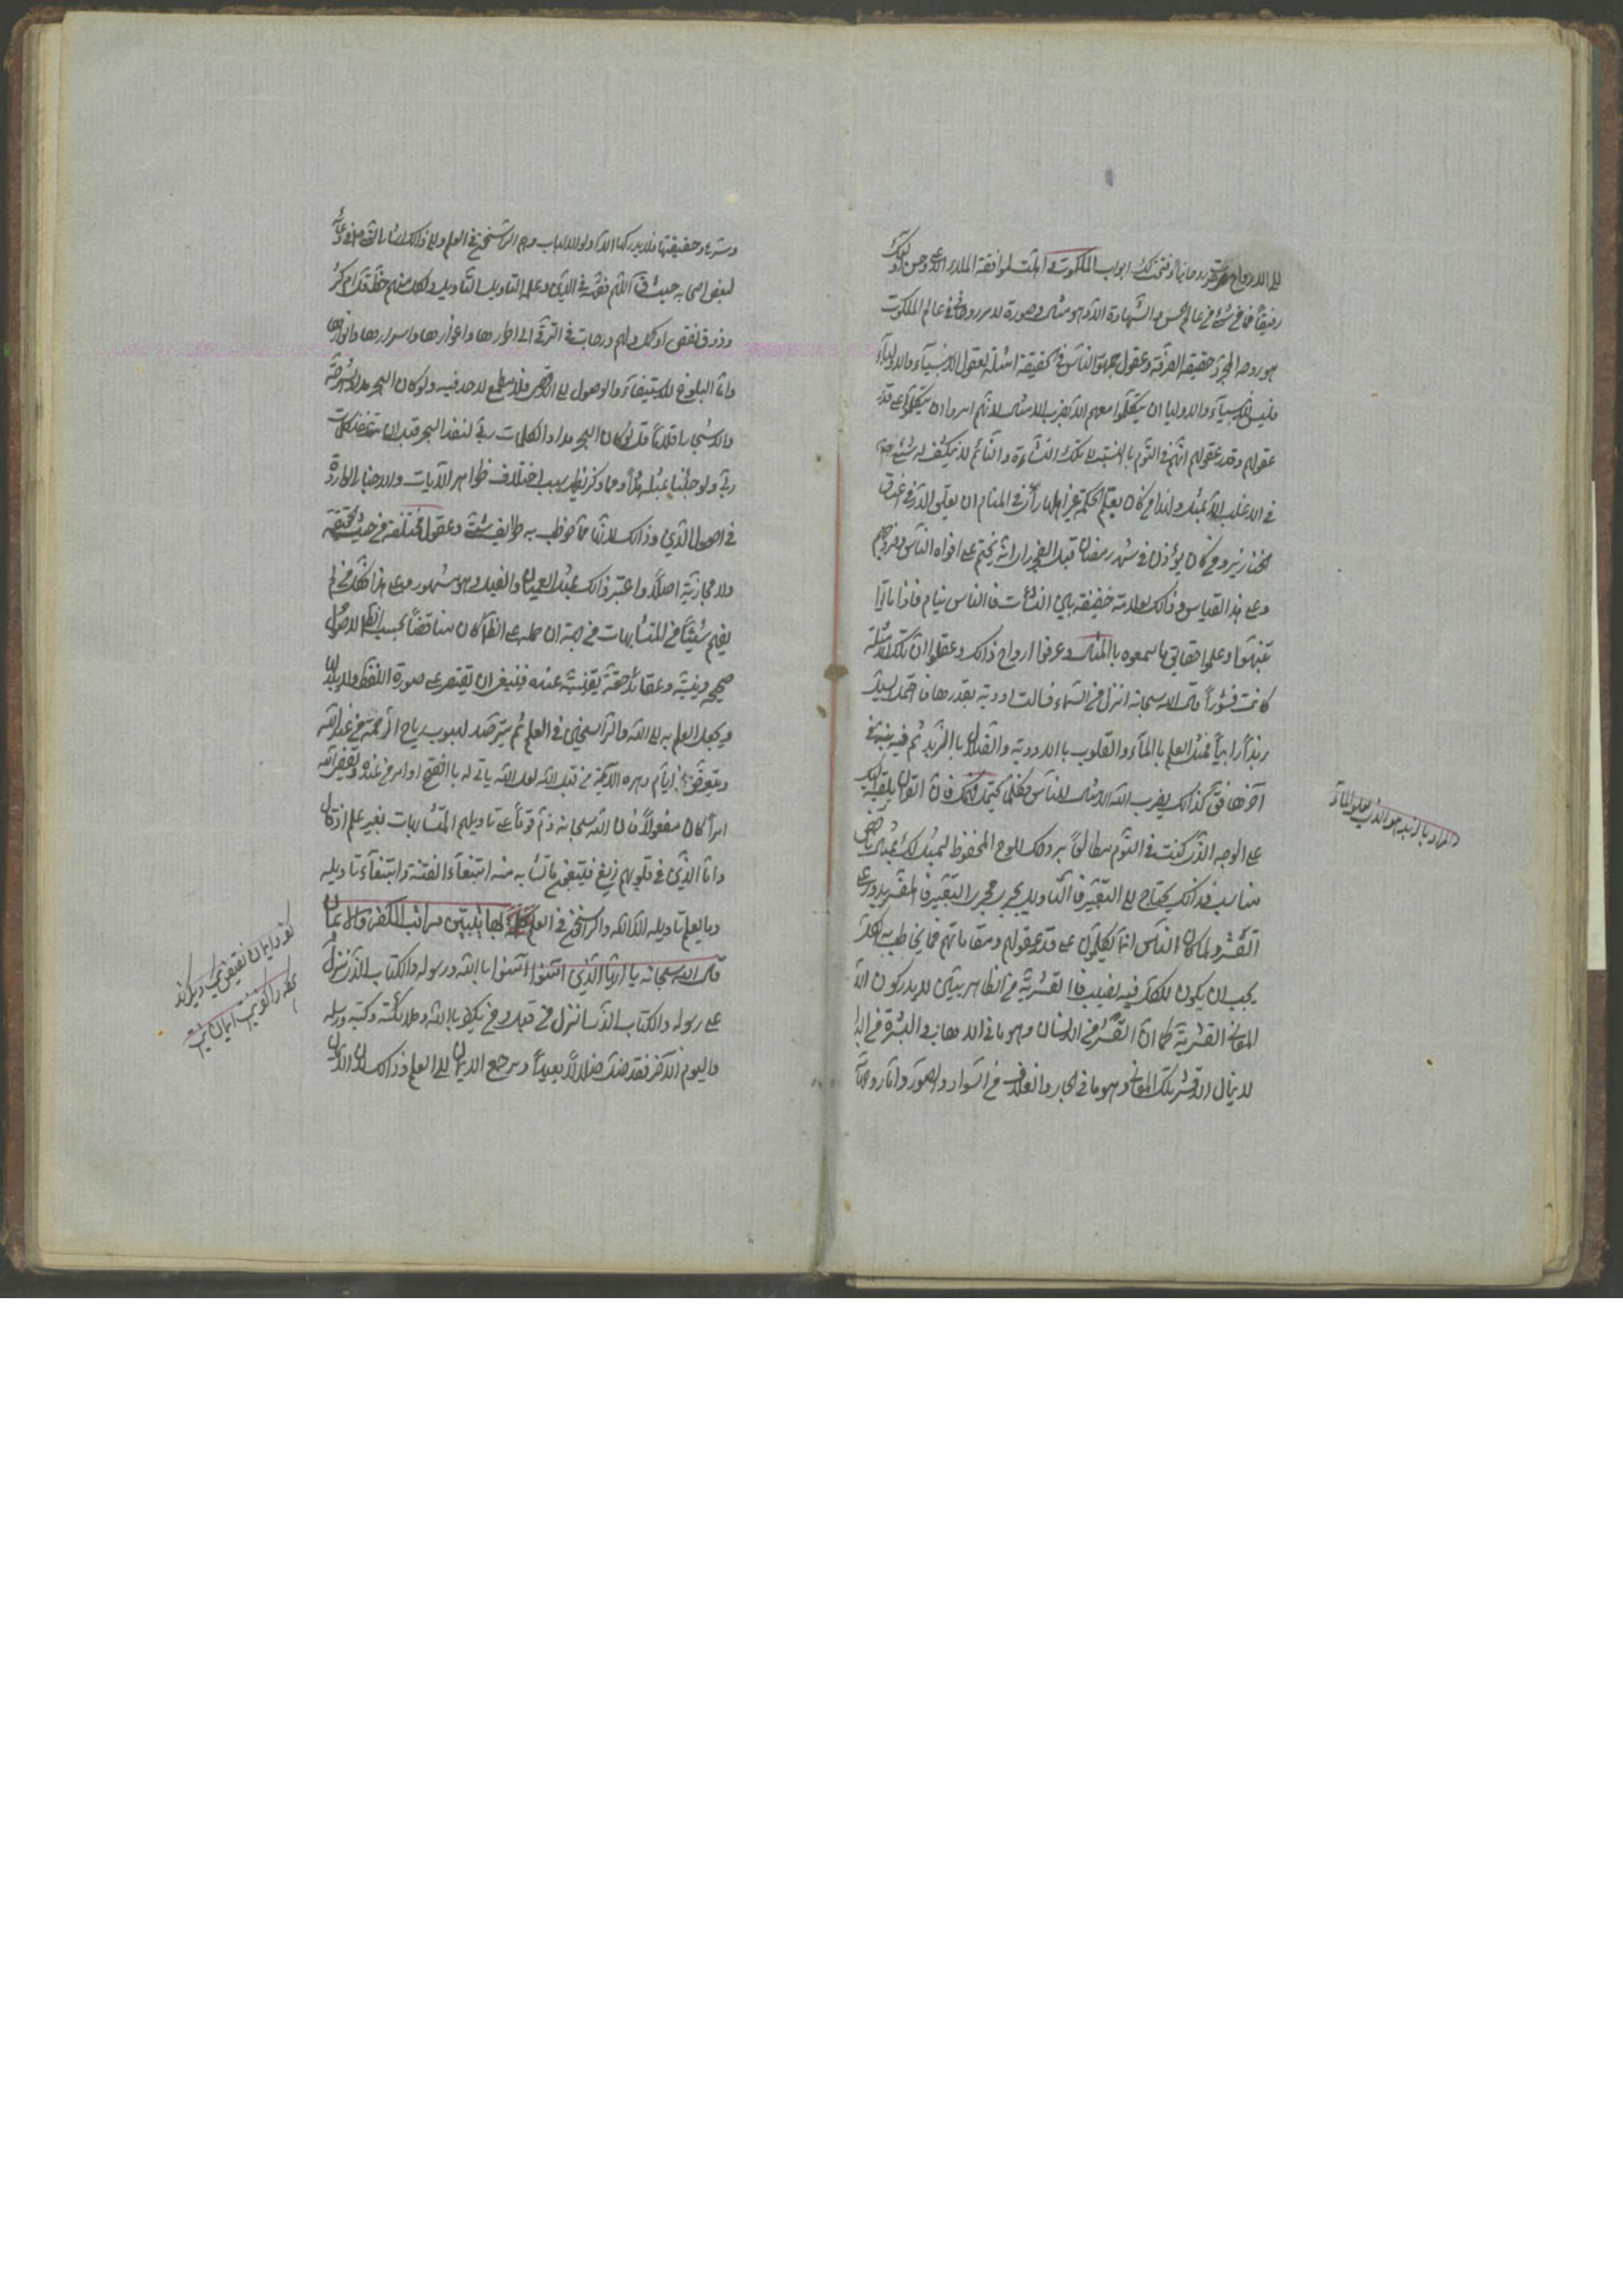 الى الارواح صرت روحانيا وفتحت لك ابواب الملكوت واهلت لمرافقة الملاء الاعلى وحسن اولئك
رفيقاً فما من شئ في عالم الحس والشهادة الا وهو مثال وصورة لامر روحاني في عالم الملكوت
هو روحه المجرد وحقيقته الصرفة وعقول جمهور الناس في الحقيقة امثلة لعقول الانبياء والاولياء
فليس للانبياء والاولياء ان يتكلموا معهم الا بضرب الامثال لانهم امروا ان يتكلموا على قدر
عقولهم وقدر عقولهم انهم في النوم بالنسبة الى تلك النشاءة والنائم لا ينكشف له شئ
في الاغلب الا بمثل ولهذا من كان يعلم الحكمة غير اهلها رأى في المنام ان يعلق الدر في اعناق
الخنازير ومن كان يؤذن في شهر رمضان قبل الفجر راى انه يختم على افواه الناس وفروجهم
وعلى هذا القياس وذلك لعلاقة خفيفة بين النشآت فالناس نيام فاذا ماتوا
تنبهوا وعلموا حقايق ما سمعوه بالمثال وعرفوا ارواح ذلك وعقلوا ان تلك الامثلة
كانت قشوراً قال الله سبحانه انزل من السماء فسالت اودية بقدرها فاحتمل السيل
زبداً رابياً فمثل العلم بالماء والقلوب بالاودية والضلال بالزبد ثم نبه في
آخرها فق كذلك يضرب الله الامثال للناس فكلما يحتمل فهمك فان القرآن يلقيه اليك
على الوجه الذي كنت في النوم مطالعاً بروحك اللوح المحفوظ ليمثل لك بمثال
مناسب فذلك يحتاج الى التعبير فالتاويل يجري مجرى التعبير فالمفسر يدور على
القشر ولما كان الناس انما يتكلمون على قدر عقولهم ومقاماتهم فما يخاطب به الكل
يجب ان يكون للكل فيه نصيب فالقشرية من الظاهريين لا يدركون الا
المعاني القشرية كما ان القشر من الانسان وهو ما في الاهاب والبشرة من البدن
لا ينال الا قشر تلك المعاني وهو ما في الجلد والغلاف من السواد والصور واما روحها
المراد بالزبد هو الذي يعلو الماء
وسرها وحقيقتها فلا يدركها الا اولو الالباب وهم الراسخون في العلم والى ذلك اشار النبي في دعائه
لبعض اصحابه حيث ق اللهم فقهه في الدين وعلمه التاويل ولكل منهم حظ قل ام كثر
وذوق نقص او كمل ولهم درجات في الترقي الى اطوارها واغوارها واسرارها وانوارها
واما البلوغ للاستيفاء والوصول الى الاقصى فلا مطمع لاحد فيه ولو كان البحر مداداً لشرحه
والاشجار اقلاماً قل لو كان البحر مداداً لكلمات ربي لنفد البحر قبل ان تنفد كلمات
ربي ولو جئنا بمثله مدداً ومما ذكر يظهر سبب اختلاف ظواهر الآيات والاخبار الواردة
في اصول الدين وذلك لانها مما خوطب به طوايف شتى وعقول مختلفة
ولا مجازية اصلاً واعتبر ذلك بمثال العميان والفيل وهو مشهور وعلى هذا فكل من لم
يفهم شيئاً من المتشابهات من جهة ان حمله على الظاهر كان مناقضاً بحسب الظاهر لاصول
صحيحة دينية وعقائد حقة يقينية عنده فينبغي ان يقتصر على صورة اللفظ ولا يبدلها
ويجعل العلم به الى الله والراسخين في العلم ثم يترصد لهبوب رياح الرحمة من عند الله
ويتعرض في ايام دهره الآتية من قبل الله لعل الله ياتي له بالفتح او امر من عنده ويقضي الله
امراً كان مفعولاً فان الله سبحانه ذم قوماً على تاويلهم المتشابهات بغير علم اذ قال
واما الذين في قلوبهم زيغ فيتبعون ما تشابه منه ابتغاء الفتنة وابتغاء تاويله
وما يعلم تاويله الا الله والراسخون في العلم كلمة بها يتبين مراتب الكفر والايمان
قال الله سبحانه يا ايها الذين امنوا امنوا بالله ورسوله والكتاب الذي نزل
على رسوله والكتاب الذي انزل من قبل ومن يكفر بالله وملائكته وكتبه ورسله
واليوم الاخر فقد ضل ضلالاً بعيداً ومرجع الايمان الى العلم وذلك لان الايمان
كفر وايمان نقيض يكديكرند